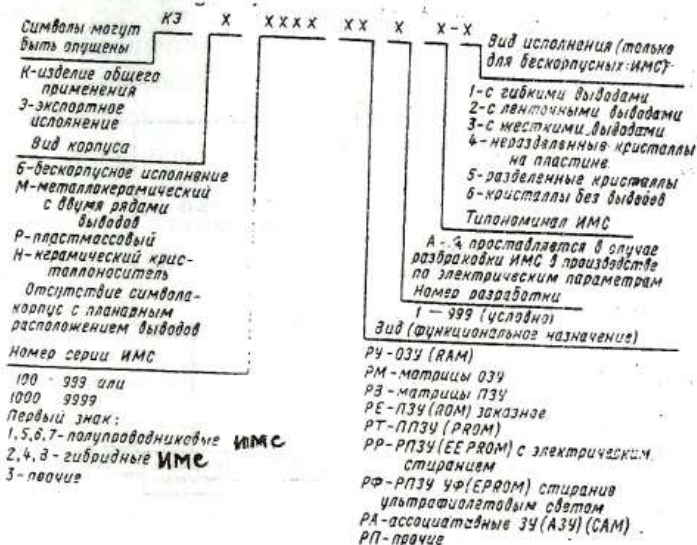 КЭ X XXXX XX X X-X
Символы могут
быть опущены
К-изделие общего
применения
Э-экспортное
исполнение
Вид корпуса
Б-бескорпусное исполнение
М-металлокерамический
с двумя рядами
выводов
Р-пластмассовый
Н-керамический крис-
таллоноситель
Отсутствие символа-
корпус с планарным
расположением выводов
Номер серии ИМС
100 - 999 или
1000 9999
Первый знак:
1,5,6,7-полупроводниковые ИМС
2,4,8-гибридные ИМС
3-прочие
Вид исполнения (только
для бескорпусных ИМС)
1-с гибкими выводами
2-с ленточными выводами
3-с жесткими выводами
4-неразделенные кристаллы
на пластине
5-разделенные кристаллы
6-кристаллы без выводов
Типономинал ИМС
проставляется в случае
разбраковки ИМС в производстве
по электрическим параметрам
Номер разработки
1 — 999 (условно)
Вид (функциональное назначение)
РУ-ОЗУ (RAM)
РМ-матрицы ОЗУ
РВ-матрицы ПЗУ
РЕ-ПЗУ (ROM) заказное
РТ-ППЗУ (PROM)
РР-РПЗУ (EEPROM) с электрическим
стиранием
РФ-РПЗУ УФ (EPROM) стирание
ультрафиолетовым светом
РА-ассоциативные ЗУ (АЗУ) (CAM)
РП-прочие